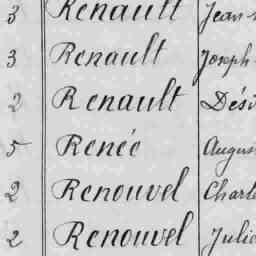 3 Renault Jean
3 Renault Joseph
2 Renault Dési
5 Renée Augus
2 Renouvel Charl
2 Renouvel Julie